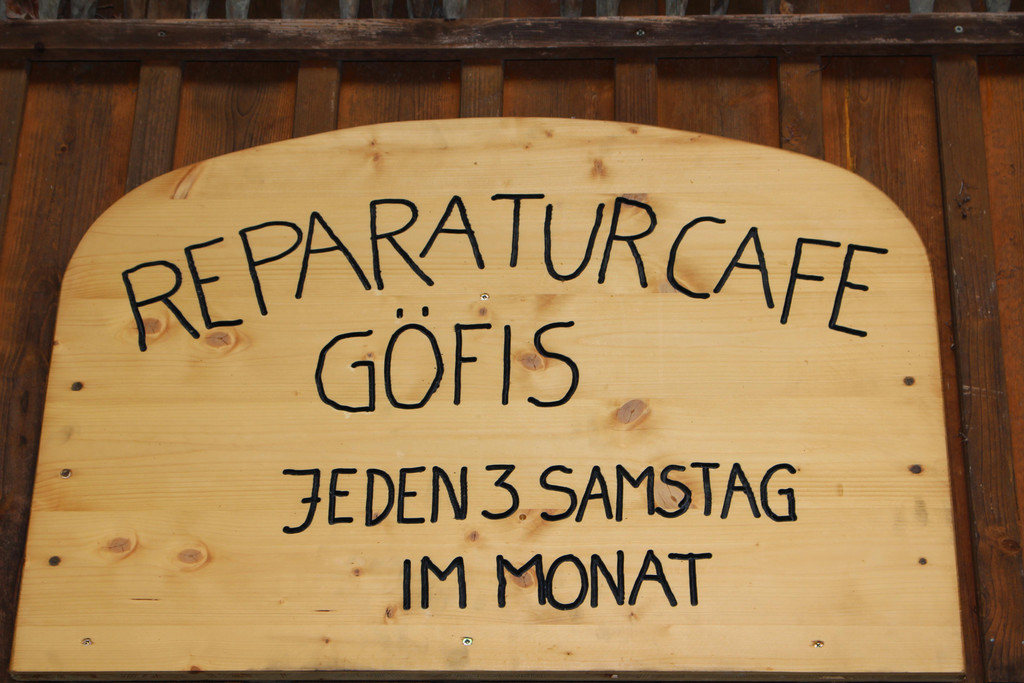 REPARATURCAFE
GÖFIS
JEDEN 3. SAMSTAG
IM MONAT